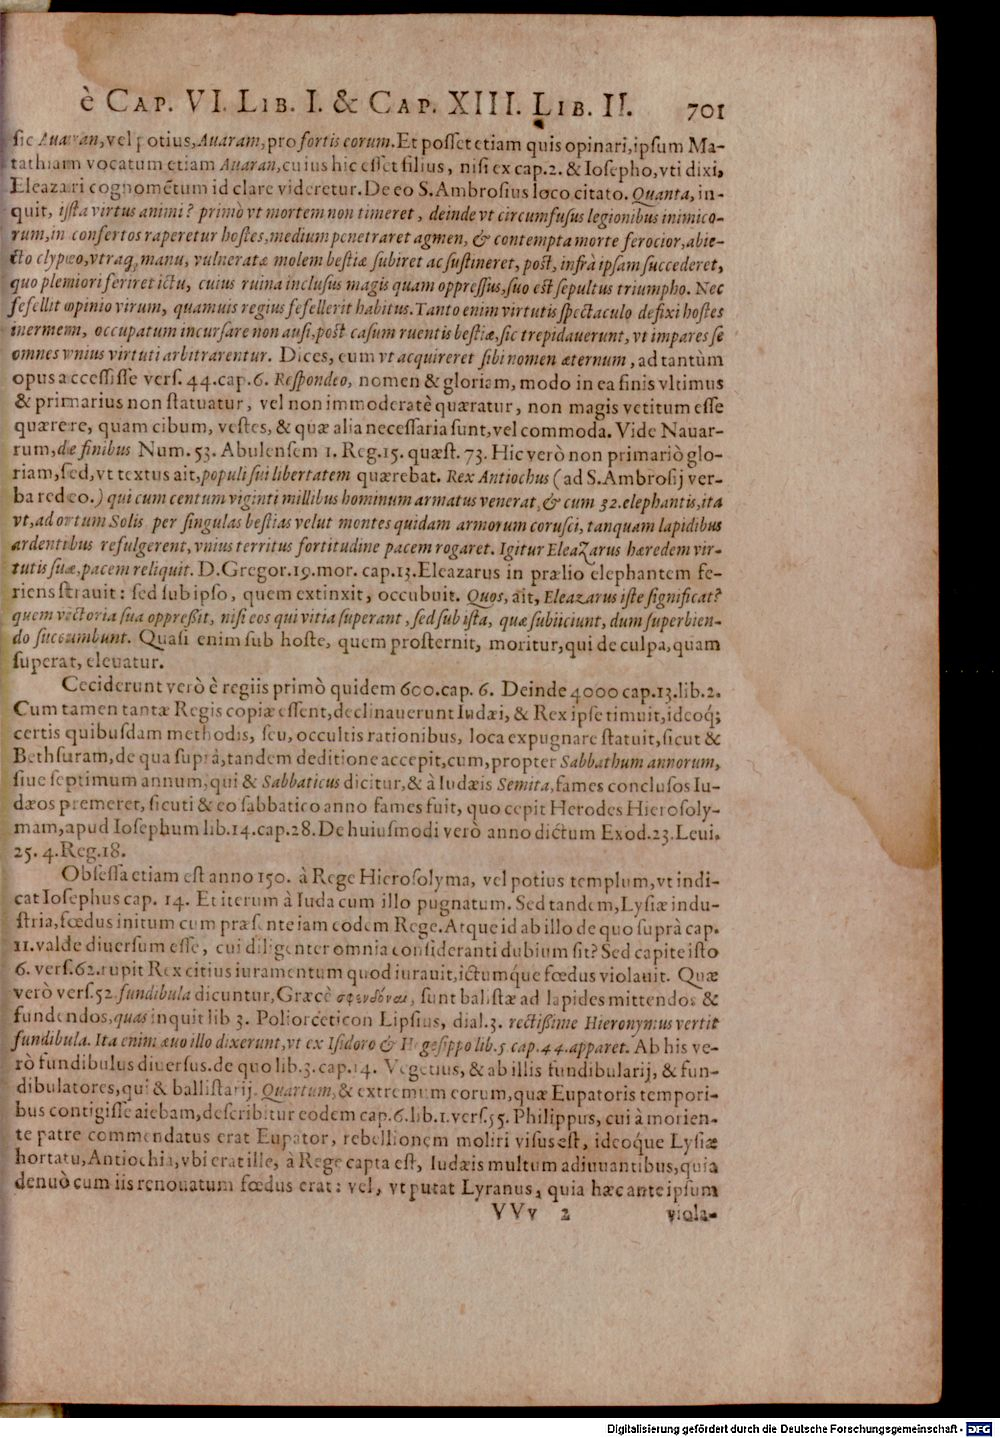 è CAP. VI. LIB. I. & CAP. XIII. LIB. II. 701
ſic Auaran, vel potius, Auaram, pro fortis eorum. Et poſſet etiam quis opinari, ipſum Ma-
tathiam vocatum etiam Auaran, cuius hic eſſet filius, niſi ex cap. 2. & Ioſepho, vti dixi,
Eleazari cognomẽtum id clare videretur. De eo S. Ambroſius loco citato. Quanta, in-
quit, iſta virtus animi? primò vt mortem non timeret, deinde vt circumfuſus legionibus inimico-
rum, in confertos raperetur hoſtes, medium penetraret agmen, & contempta morte ferocior, abie-
cto clypeo, vtraq; manu, vulneratæ molem beſtiæ ſubiret ac ſuſtineret, poſt, infrà ipſam ſuccederet,
quo pleniori feriret ictu, cuius ruina incluſus magis quam oppreſſus, ſuo eſt ſepultus triumpho. Nec
fefellit opinio virum, quamuis regius fefellerit habitus. Tanto enim virtutis ſpectaculo defixi hoſtes
inermem, occupatum incurſare non auſi, poſt caſum ruentis beſtiæ, ſic trepidauerunt, vt impares ſe
omnes vnius virtuti arbitrarentur. Dices, eum vt acquireret ſibi nomen æternum, ad tantùm
opus acceſſiſſe verſ. 44. cap. 6. Reſpondeo, nomen & gloriam, modo in ea finis vltimus
& primarius non ſtatuatur, vel non immoderatè quæratur, non magis vetitum eſſe
quærere, quam cibum, veſtes, & quæ alia neceſſaria ſunt, vel commoda. Vide Nauar-
rum, de finibus Num. 53. Abulenſem 1. Reg. 15. quæſt. 73. Hic verò non primariò glo-
riam, ſed, vt textus ait, populi ſui libertatem quærebat. Rex Antiochus (ad S. Ambroſij ver-
ba redeo.) qui cum centum viginti millibus hominum armatus venerat, & cum 32. elephantis, ita
vt, ad ortum Solis per ſingulas beſtias velut montes quidam armorum coruſci, tanquam lapidibus
ardentibus refulgerent, vnius territus fortitudine pacem rogaret. Igitur Eleazarus hæredem vir-
tutis ſuæ, pacem reliquit. D. Gregor. 19. mor. cap. 13. Eleazarus in prælio elephantem fe-
riens ſtrauit: ſed ſub ipſo, quem extinxit, occubuit. Quos, ait, Eleazarus iſte ſignificat?
quem victoria ſua oppreßit, niſi eos qui vitia ſuperant, ſed ſub iſta, quæ ſubijciunt, dum ſuperbien-
do ſuccumbunt. Quaſi enim ſub hoſte, quem proſternit, moritur, qui de culpa, quam
ſuperat, eleuatur.
Ceciderunt verò è regiis primò quidem 600. cap. 6. Deinde 4000 cap. 13. lib. 2.
Cum tamen tantæ Regis copiæ eſſent, declinauerunt Iudæi, & Rex ipſe timuit, ideoq;
certis quibuſdam methodis, ſeu, occultis rationibus, loca expugnare ſtatuit, ſicut &
Bethſuram, de qua ſuprà, tandem deditione accepit, cum, propter Sabbathum annorum,
ſiue ſeptimum annum, qui & Sabbaticus dicitur, & à Iudæis Semita, fames concluſos Iu-
dæos premeret, ſicuti & eo ſabbatico anno fames fuit, quo cepit Herodes Hieroſoly-
mam, apud Ioſephum lib. 14. cap. 28. De huiuſmodi verò anno dictum Exod. 23. Leui.
25. 4. Reg. 18.
Obſeſſa etiam eſt anno 150. à Rege Hieroſolyma, vel potius templum, vt indi-
cat Ioſephus cap. 14. Et iterum à Iuda cum illo pugnatum. Sed tandem, Lyſiæ indu-
ſtria, fœdus initum cum præſente iam eodem Rege. Atque id ab illo de quo ſuprà cap.
11. valde diuerſum eſſe, cui diligenter omnia conſideranti dubium ſit? Sed capite iſto
6. verſ. 62. rupit Rex citius iuramentum quod iurauit, ictumque fœdus violauit. Quæ
verò verſ. 52. fundibula dicuntur, Græcè σφενδόναι, ſunt baliſtæ ad lapides mittendos &
fundendos, quas inquit lib 3. Poliorceticon Lipſius, dial. 3. rectißime Hieronymus vertit
fundibula. Ita enim æuo illo dixerunt, vt ex Iſidoro & Hegeſippo lib. 5. cap. 44. apparet. Ab his ve-
rò fundibulus diuerſus. de quo lib. 3. cap. 14. Vegetius, & ab illis fundibularij, & fun-
dibulatores, qui & balliſtarij. Quartum, & extremum eorum, quæ Eupatoris tempori-
bus contigiſſe aiebam, deſcribitur eodem cap. 6. lib. 1. verſ. 55. Philippus, cui à morien-
te patre commendatus erat Eupator, rebellionem moliri viſus eſt, ideoque Lyſiæ
hortatu, Antiochia, vbi erat ille, à Rege capta eſt, Iudæis multum adiuuantibus, quia
denuò cum iis renouatum fœdus erat: vel, vt putat Lyranus, quia hæc ante ipſum
VVv 2 viola-
Digitalisierung gefördert durch die Deutsche Forschungsgemeinschaft - DFG